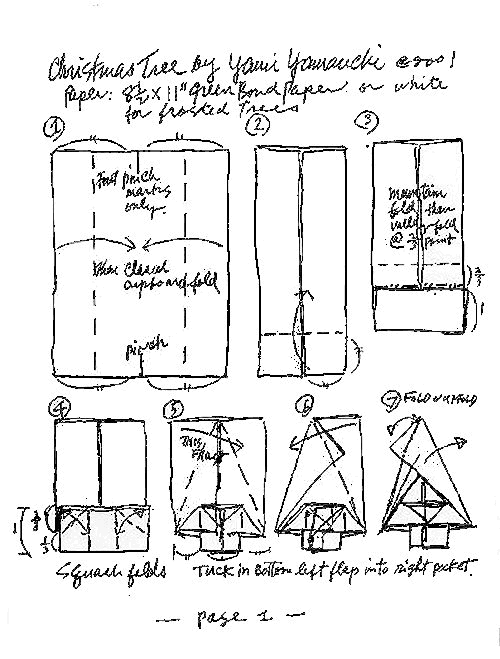 Christmas Tree by Yami Yamauchi ©2001
Paper: 8½ x 11" Green Bond Paper or white
for frosted Trees
1
2
3
pinch
marks
only.
Mountain
fold then
valley fold
@ ⅔ point
then closed
cupboard fold
pinch
⅔
1
4
5
6
7 FOLD & UNFOLD
1
⅔
⅓
Squash folds
Tuck in bottom left flap into right pocket.
— page 1 —